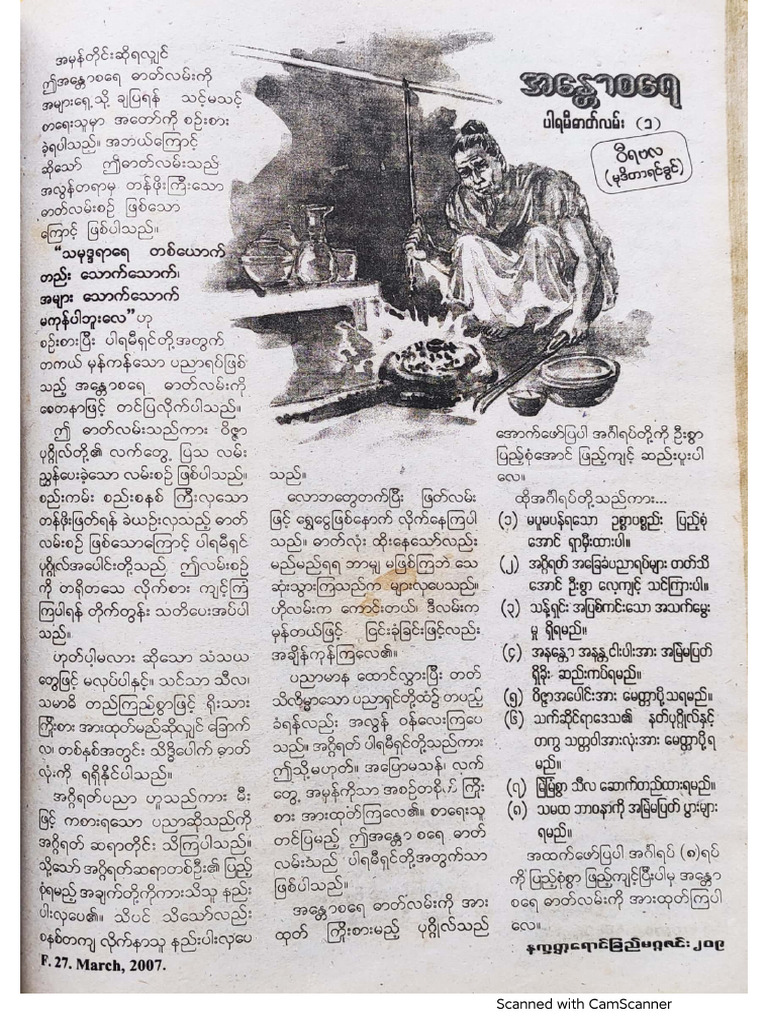 အန္တောစရေ
ပါရမီဓာတ်လမ်း (၁)
ဝီရဗလ
(မုဒိတာရင်ခွင်)
အမှန်တိုင်းဆိုရလျှင်
ဤအန္တောစရေ ဓာတ်လမ်းကို
အများရှေ့သို့ ချပြရန် သင့်မသင့်
စာရေးသူမှာ အတော်ကို စဉ်းစား
ခဲ့ရပါသည်။ အဘယ်ကြောင့်
ဆိုသော် ဤဓာတ်လမ်းသည်
အလွန်တရာမှ တန်ဖိုးကြီးသော
ဓာတ်လမ်းစဉ် ဖြစ်သော
ကြောင့် ဖြစ်ပါသည်။
“သမုဒ္ဒရာရေ တစ်ယောက်
တည်း သောက်သောက်၊
အများ သောက်သောက်
မကုန်ပါဘူးလေ”ဟု
စဉ်းစားပြီး ပါရမီရှင်တို့အတွက်
တကယ် မှန်ကန်သော ပညာရပ်ဖြစ်
သည့် အန္တောစရေ ဓာတ်လမ်းကို
စေတနာဖြင့် တင်ပြလိုက်ပါသည်။
ဤ ဓာတ်လမ်းသည်ကား ဝိဇ္ဇာ
ပုဂ္ဂိုလ်တို့၏ လက်တွေ့ ပြသ လမ်း
ညွှန်ပေးခဲ့သော လမ်းစဉ် ဖြစ်ပါသည်။
စည်းကမ်း စည်းစနစ် ကြီးလှသော
တန်ဖိုးဖြတ်ရန် ခဲယဉ်းလှသည့် ဓာတ်
လမ်းစဉ် ဖြစ်သောကြောင့် ပါရမီရှင်
ပုဂ္ဂိုလ်အပေါင်းတို့သည် ဤလမ်းစဉ်
ကို တရိုတသေ လိုက်စား ကျင့်ကြံ
ကြပါရန် တိုက်တွန်း သတိပေးအပ်ပါ
သည်။
ဟုတ်ပါ့မလား ဆိုသော သံသယ
တွေဖြင့် မလုပ်ပါနှင့်။ သင်သာ သီလ၊
သမာဓိ တည်ကြည်စွာဖြင့် ရိုးသား
ကြိုးစား အားထုတ်မည်ဆိုလျှင် ခြောက်
လ၊ တစ်နှစ်အတွင်း သိဒ္ဓိပေါက် ဓာတ်
လုံးကို ရရှိနိုင်ပါသည်။
အဂ္ဂိရတ်ပညာ ဟူသည်ကား မီး
ဖြင့် ကစားရသော ပညာဆိုသည်ကို
အဂ္ဂိရတ် ဆရာတိုင်း သိကြပါသည်။
သို့သော် အဂ္ဂိရတ်ဆရာတစ်ဦး၏ ပြည့်
စုံရမည့် အချက်တို့ကိုကားသိသူ နည်း
ပါးလှပေ၏။ သိပင် သိသော်လည်း
စနစ်တကျ လိုက်နာသူ နည်းပါးလှပေ
သည်။
လောဘတွေတက်ပြီး ဖြတ်လမ်း
ဖြင့် ရွှေငွေဖြစ်နောက် လိုက်နေကြပါ
သည်။ ဓာတ်လုံး ထိုးနေသော်လည်း
မည်မည်ရရ ဘာမျှ မဖြစ်ကြဘဲ သေ
ဆုံးသွားကြသည်က များလှပေသည်။
ဟိုလမ်းက ကောင်းတယ်၊ ဒီလမ်းက
မှန်တယ်ဖြင့် ငြင်းခုံခြင်းဖြင့်လည်း
အချိန်ကုန်ကြလေ၏။
ပညာမာန ထောင်လွှားပြီး တတ်
သိလိမ္မာသော ပညာရှင်တို့ထံ၌ တပည့်
ခံရန်လည်း အလွန် ဝန်လေးကြပေ
သည်။ အဂ္ဂိရတ် ပါရမီရှင်တို့သည်ကား
ဤသို့မဟုတ်။ အပြောမသန်၊ လက်
တွေ့ အမှန်ကိုသာ အစဉ်တစိုက် ကြိုး
စား အားထုတ်ကြလေ၏။ စာရေးသူ
တင်ပြမည့် ဤအန္တော စရေ ဓာတ်
လမ်းသည် ပါရမီရှင်တို့အတွက်သာ
ဖြစ်ပါသည်။
အန္တောစရေ ဓာတ်လမ်းကို အား
ထုတ် ကြိုးစားမည့် ပုဂ္ဂိုလ်သည်
အောက်ဖော်ပြပါ အင်္ဂါရပ်တို့ကို ဦးစွာ
ပြည့်စုံအောင် ဖြည့်ကျင့် ဆည်းပူးပါ
လေ။
ထိုအင်္ဂါရပ်တို့သည်ကား...
(၁) မပူမပန်ရသော ဥစ္စာပစ္စည်း ပြည့်စုံ
အောင် ရှာမှီးထားပါ။
(၂) အဂ္ဂိရတ် အခြေခံပညာရပ်များ တတ်သိ
အောင် ဦးစွာ လေ့ကျင့် သင်ကြားပါ။
(၃) သန့်ရှင်း အပြစ်ကင်းသော အသက်မွေး
မှု ရှိရမည်။
(၄) အနန္တော အနန္တငါးပါးအား အမြဲမပြတ်
ရှိခိုး ဆည်းကပ်ရမည်။
(၅) ဝိဇ္ဇာအပေါင်းအား မေတ္တာပို့သရမည်။
(၆) သက်ဆိုင်ရာဒေသ၏ နတ်ပုဂ္ဂိုလ်နှင့်
တကွ သတ္တဝါအားလုံးအား မေတ္တာပို့ရ
မည်။
(၇) မြဲမြံစွာ သီလ ဆောက်တည်ထားရမည်။
(၈) သမထ ဘာဝနာကို အမြဲမပြတ် ပွားများ
ရမည်။
အထက်ဖော်ပြပါ အင်္ဂါရပ် (၈)ရပ်
ကို ပြည့်စုံစွာ ဖြည့်ကျင့်ပြီးပါမှ အန္တော
စရေ ဓာတ်လမ်းကို အားထုတ်ကြပါ
လေ။
F. 27. March, 2007.
နက္ခတ္တရောင်ခြည်မဂ္ဂဇင်း ၂၀၉
Scanned with CamScanner